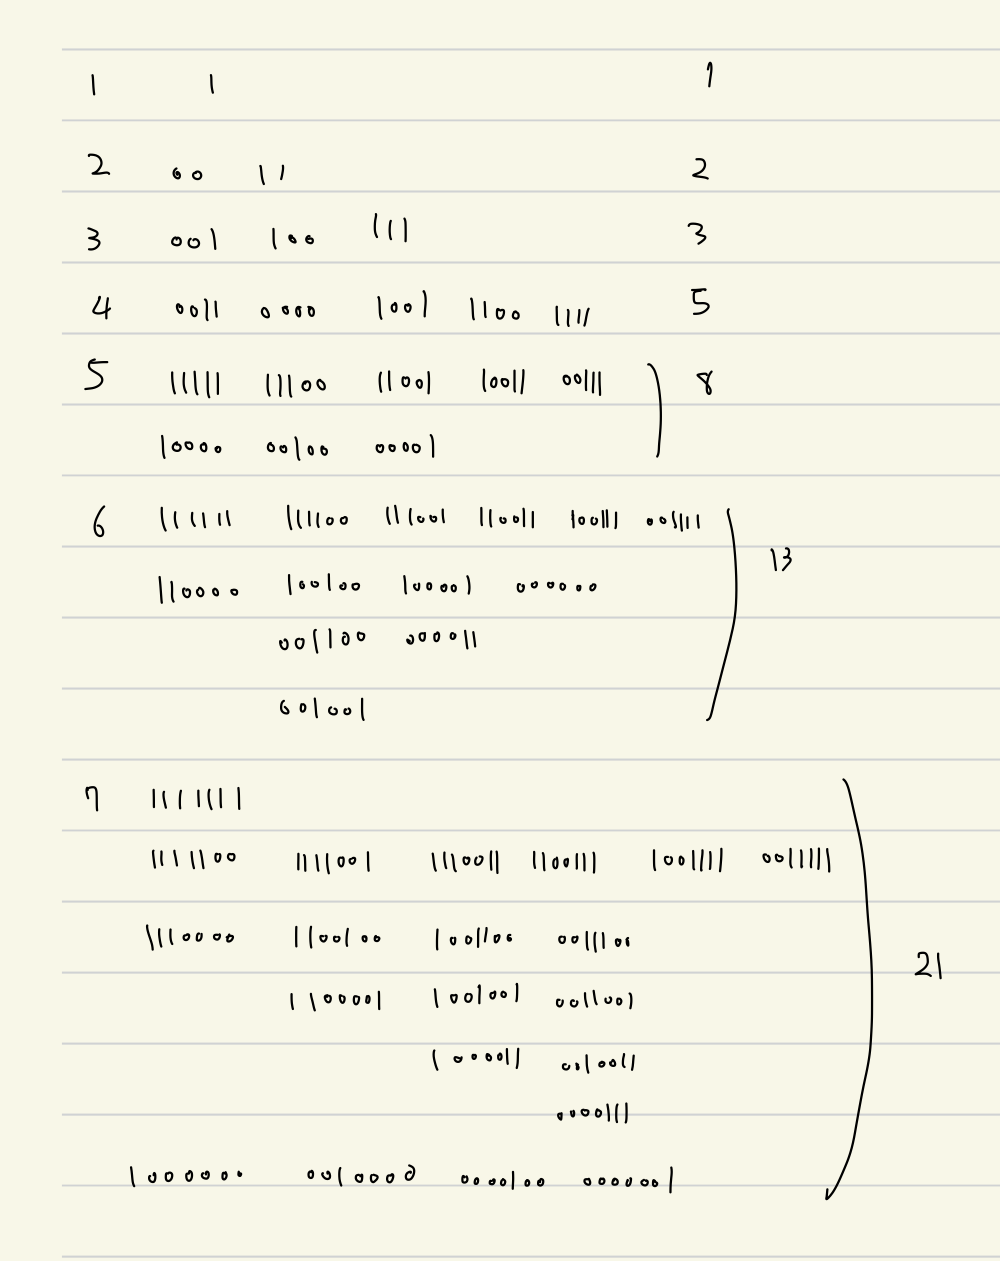 1 1 1
2 00 11 2
3 001 100 111 3
4 0011 0000 1001 1100 1111 5
5 11111 11100 11001 10011 00111 8
10000 00100 00001
6 111111 111100 111001 110011 100111 001111
13
110000 100100 100001 000000
001100 000011
001001
7 1111111
1111100 1111001 1110011 1100111 1001111 0011111
1110000 1100100 1001100 0011100
21
1100001 1001001 0011001
1000011 0010011
0000111
1000000 0010000 0000100 0000001